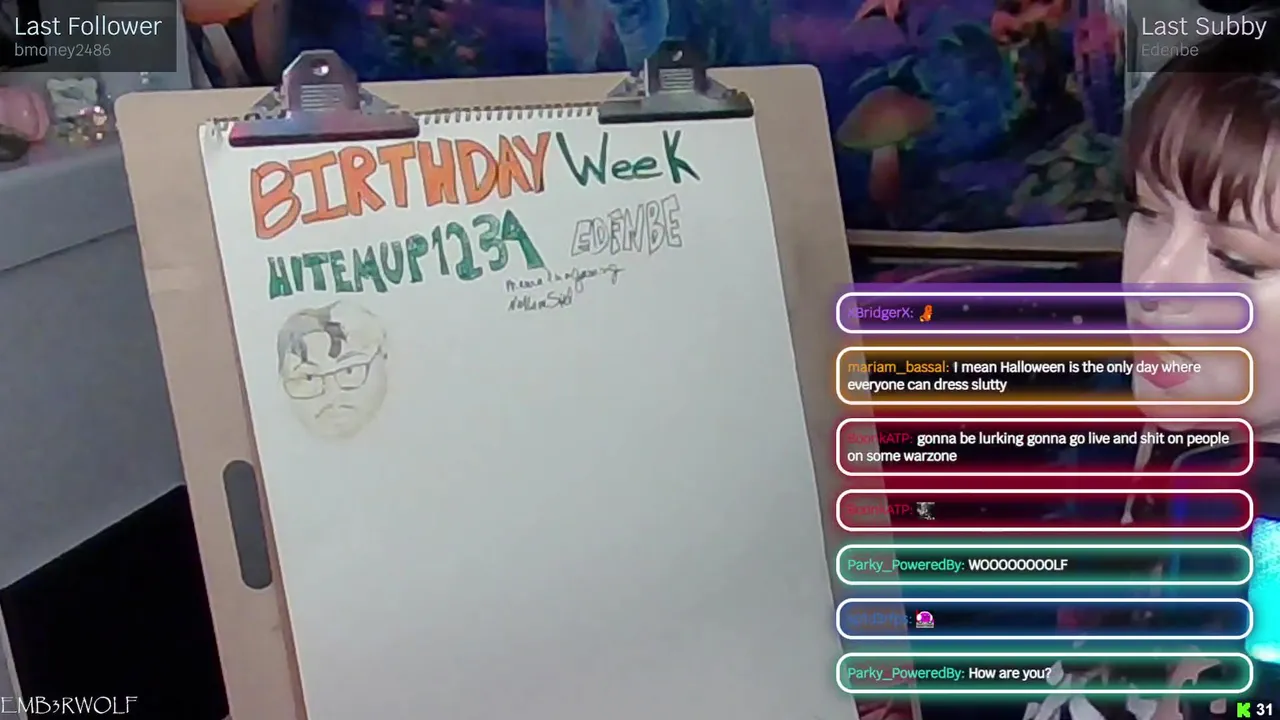 Last Follower
bmoney2486
Last Subby
Edenbe
BIRTHDAY Week
HITEMUP1234 EDENBE
XBridgerX:
mariam_bassal: I mean Halloween is the only day where
everyone can dress slutty
BoonkATP: gonna be lurking gonna go live and shit on people
on some warzone
BoonkATP:
Parky_PoweredBy: WOOOOOOOLF
Parky_PoweredBy: How are you?
EMB3RWOLF
K 31